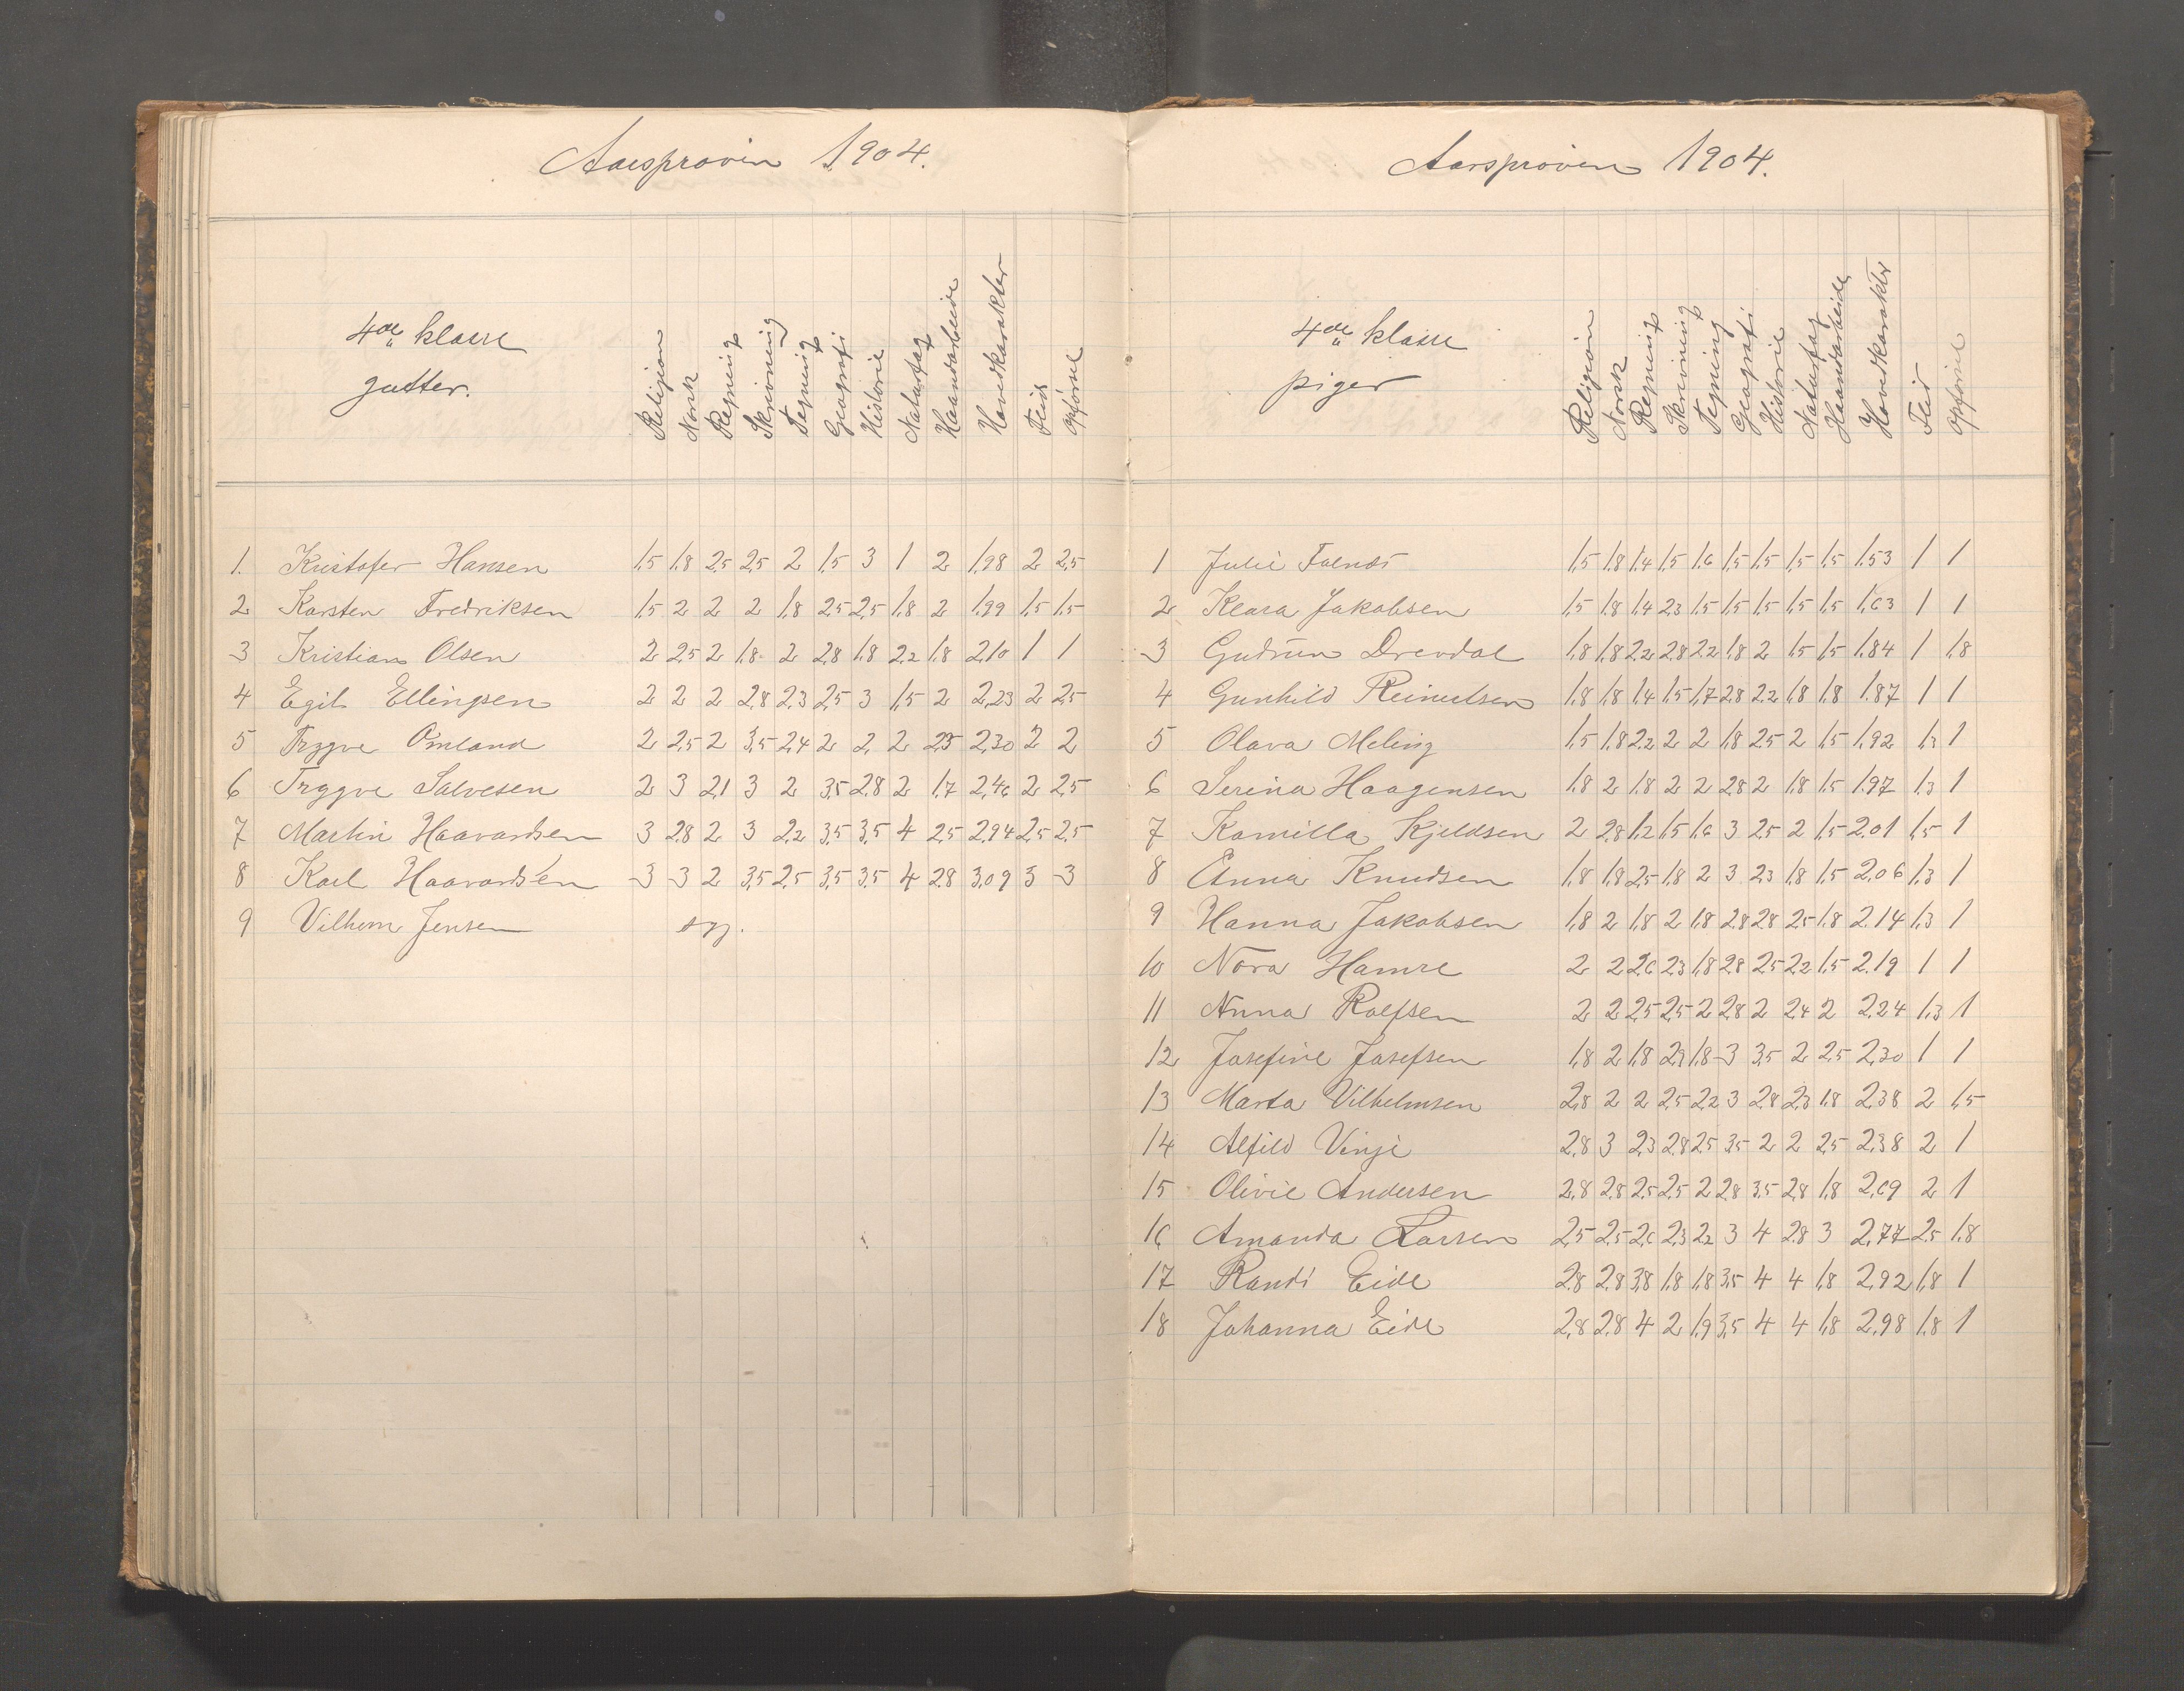 Aarsprøven 1904.
4de klasse
gutter.
Religion Norsk Regning Skrivning Tegning Geografi Historie Naturfag Haandarbeide Hovedkarakter Flid Opførsel
1. Kristofer Hansen 1,5 1,8 2,5 2,5 2 1,5 3 1 2 1,98 2 2,5
2 Karsten Fredriksen 1,5 2 2 2 1,8 2,5 2,5 1,8 2 1,99 1,5 1,5
3 Kristian Olsen 2 2,5 2 1,8 2 2,8 1,8 2,2 1,8 2,10 1 1
4 Egil Ellingsen 2 2 2 2,8 2,3 2,5 3 1,5 2 2,23 2 2,5
5 Trygve Omland 2 2,5 2 3,5 2,4 2 2 2 2,5 2,30 2 2
6 Trygve Salvesen 2 3 2,1 3 2 3,5 2,8 2 1,7 2,46 2 2,5
7 Martin Haavardsen 3 2,8 2 3 2,2 3,5 3,5 4 2,5 2,94 2,5 2,5
8 Karl Haavardsen 3 3 2 3,5 2,5 3,5 3,5 4 2,8 3,09 3 3
9 Vilhem Jensen syg.
Aarsprøven 1904.
4de klasse
piger
Religion Norsk Regning Skrivning Tegning Geografi Historie Naturfag Haandarbeide Hovedkarakter Flid Opførsel
1 Julie 1,5 1,8 1,4 1,5 1,6 1,5 1,5 1,5 1,5 1,53 1 1
2 Klara Jakobsen 1,5 1,8 1,4 2,3 1,5 1,5 1,5 1,5 1,5 1,63 1 1
3 Gudrun Drevdal 1,8 1,8 2,2 2,8 2,2 1,8 2 1,5 1,5 1,84 1 1,8
4 Gunhild Reinertsen 1,8 1,8 1,4 1,5 1,7 2,8 2,2 1,8 1,8 1,87 1 1
5 Olava Meling 1,5 1,8 2,2 2 2 1,8 2,5 2 1,5 1,92 1,3 1
6 Serina Haagensen 1,8 2 1,8 2 2 2,8 2 1,8 1,5 1,97 1,3 1
7 Kamilla Kjeldsen 2 2,8 1,2 1,5 1,6 3 2,5 2 1,5 2,01 1,5 1
8 Anna Knudsen 1,8 1,8 2,5 1,8 2 3 2,3 1,8 1,5 2,06 1,3 1
9 Hanna Jakobsen 1,8 2 1,8 2 1,8 2,8 2,8 2,5 1,8 2,14 1,3 1
10 Nora Hamre 2 2 2,6 2,3 1,8 2,8 2,5 2,2 1,5 2,19 1 1
11 Anna Rolfsen 2 2 2,5 2,5 2 2,8 2 2,4 2 2,24 1,3 1
12 Josefine Josefsen 1,8 2 1,8 2,3 1,8 3 3,5 2 2,5 2,30 1 1
13 Marta Vilhelmsen 2,8 2 2 2,5 2,2 3 2,8 2,3 1,8 2,38 2 1,5
14 Alfild Vinje 2,8 3 2,3 2,8 2,5 3,5 2 2 2,5 2,38 2 1
15 Olivie Andersen 2,8 2,8 2,5 2,5 2 2,8 3,5 2,8 1,8 2,69 2 1
16 Amanda Larsen 2,5 2,5 2,6 2,3 2,2 3 4 2,8 3 2,77 2,5 1,8
17 Randi Eide 2,8 2,8 3,8 1,8 1,8 3,5 4 4 1,8 2,92 1,8 1
18 Johanna Eide 2,8 2,8 4 2 1,9 3,5 4 4 1,8 2,98 1,8 1